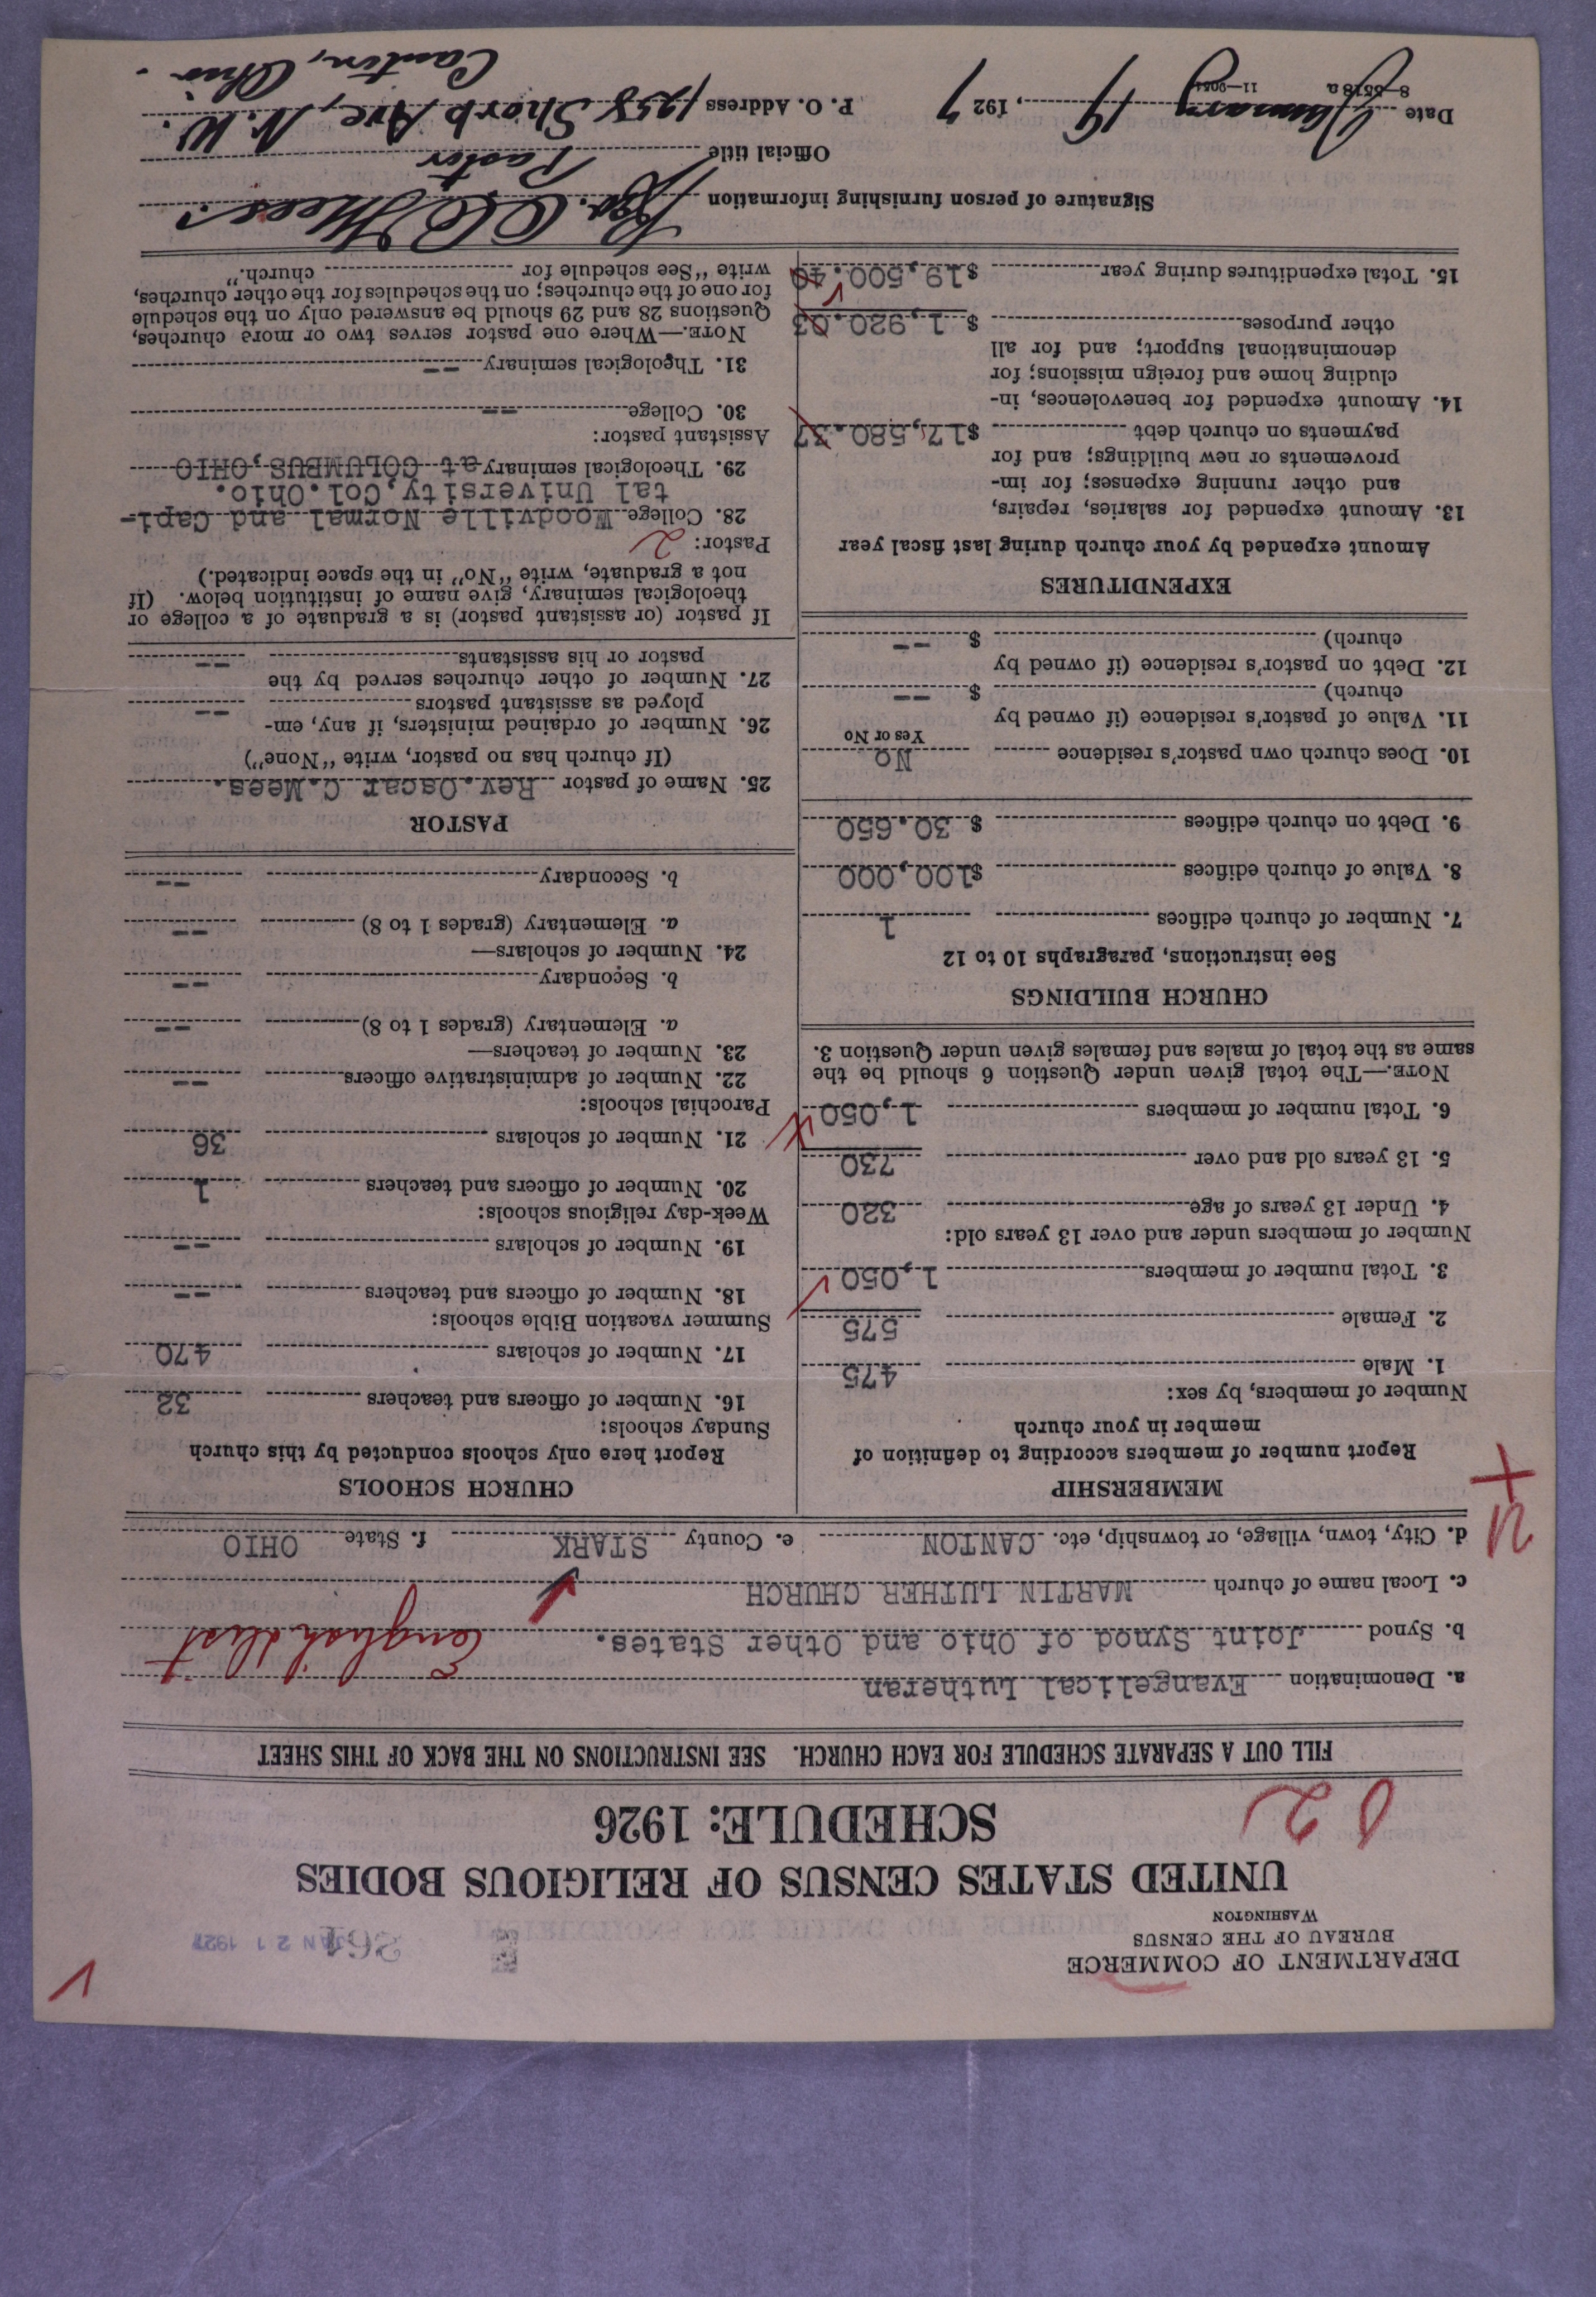 DEPARTMENT OF COMMERCE
BUREAU OF THE CENSUS
WASHINGTON
JAN 21 1927
UNITED STATES CENSUS OF RELIGIOUS BODIES
SCHEDULE: 1926
FILL OUT A SEPARATE SCHEDULE FOR EACH CHURCH. SEE INSTRUCTIONS ON THE BACK OF THIS SHEET
a. Denomination Evangelical Lutheran
b. Synod Joint Synod of Ohio and Other States. English Dist
c. Local name of church MARTIN LUTHER CHURCH
d. City, town, village, or township, etc. CANTON e. County STARK f. State OHIO
MEMBERSHIP
Report number of members according to definition of
member in your church
Number of members, by sex:
1. Male 475
2. Female 575
3. Total number of members 1,050
Number of members under and over 13 years old:
4. Under 13 years of age 320
5. 13 years old and over 730
6. Total number of members 1,050
NOTE.—The total given under Question 6 should be the
same as the total of males and females given under Question 3.
CHURCH BUILDINGS
See instructions, paragraphs 10 to 12
7. Number of church edifices 1
8. Value of church edifices $100,000
9. Debt on church edifices $ 30.650
10. Does church own pastor's residence No
Yes or No
11. Value of pastor's residence (if owned by
church) $ --
12. Debt on pastor's residence (if owned by
church) $ --
EXPENDITURES
Amount expended by your church during last fiscal year
13. Amount expended for salaries, repairs,
and other running expenses; for im-
provements or new buildings; and for
payments on church debt $17,580.37
14. Amount expended for benevolences, in-
cluding home and foreign missions; for
denominational support; and for all
other purposes $ 1,920.03
15. Total expenditures during year $19,500.40
CHURCH SCHOOLS
Report here only schools conducted by this church
Sunday schools:
16. Number of officers and teachers 32
17. Number of scholars 470
Summer vacation Bible schools:
18. Number of officers and teachers --
19. Number of scholars --
Week-day religious schools:
20. Number of officers and teachers 1
21. Number of scholars 36
Parochial schools:
22. Number of administrative officers --
23. Number of teachers—
a. Elementary (grades 1 to 8) --
b. Secondary --
24. Number of scholars—
a. Elementary (grades 1 to 8) --
b. Secondary --
PASTOR
25. Name of pastor Rev. Oscar C. Mees.
(If church has no pastor, write "None")
26. Number of ordained ministers, if any, em-
ployed as assistant pastors --
27. Number of other churches served by the
pastor or his assistants --
If pastor (or assistant pastor) is a graduate of a college or
theological seminary, give name of institution below. (If
not a graduate, write "No" in the space indicated.)
Pastor: 2
28. College Woodville Normal and Capi-
tal University, Col. Ohio.
29. Theological seminary at COLUMBUS, OHIO
Assistant pastor:
30. College --
31. Theological seminary --
NOTE.—Where one pastor serves two or more churches,
Questions 28 and 29 should be answered only on the schedule
for one of the churches; on the schedules for the other churches,
write "See schedule for church."
Signature of person furnishing information Rev. O C Mees.
Official title Pastor
Date January 19, 1927 P. O. Address 1258 Shorb Ave, N. W.
Canton, Ohio.
8-5518a 11-9051